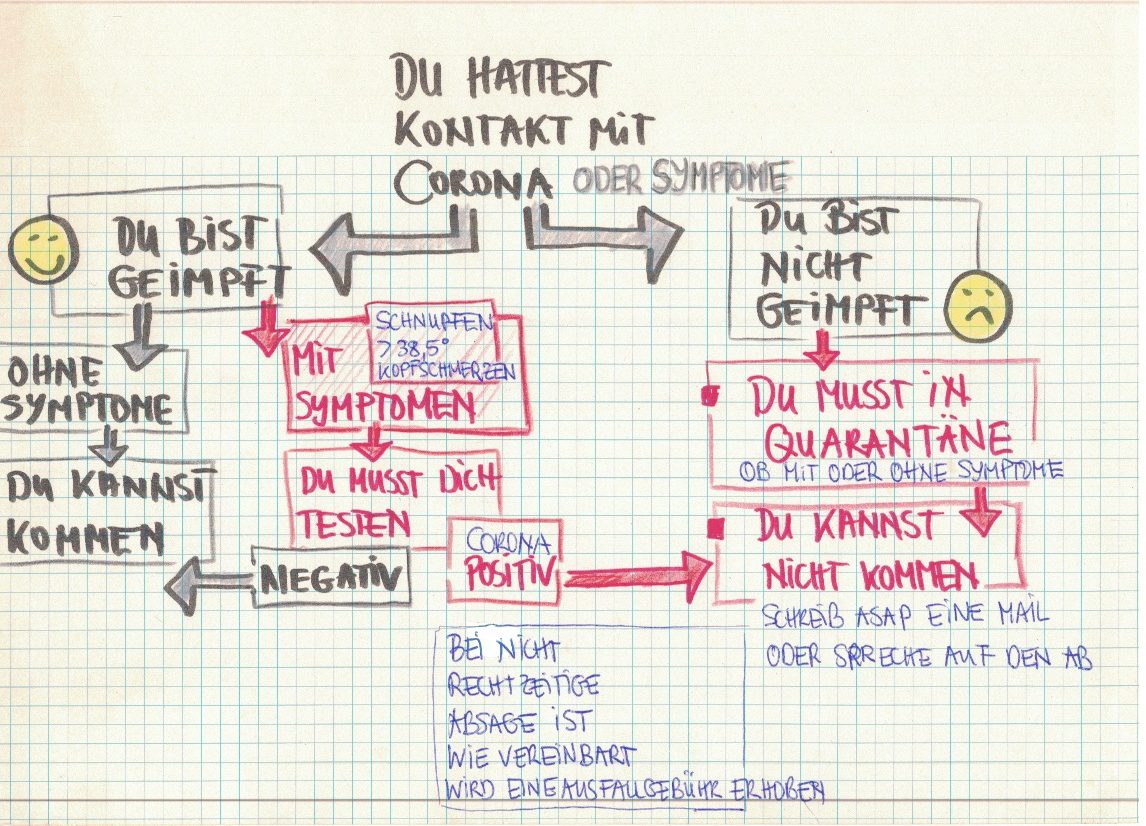 DU HATTEST
KONTAKT MiT
CORONA ODER SYMPTOME
DU BiST
GEiMPFT
OHNE
SYMPTOME
DU KANNST
KOMMEN
SCHNUPFEN
>38,5°
KOPFSCHMERZEN
MiT
SYMPTOMEN
DU MUSST DiCH
TESTEN
NEGATiV
CORONA
POSiTiV
DU BiST
NiCHT
GEiMPFT
DU MUSST iN
QUARANTÄNE
OB MiT ODER OHNE SYMPTOME
DU KANNST
NiCHT KOMMEN
SCHREiB ASAP EiNE MAiL
ODER SPRECHE AUF DEN AB
BEi NiCHT
RECHTZEiTiGE
ABSAGE iST
WiE VEREiNBART
WiRD EiNE AUSFALLGEBÜHR ERHOBEN